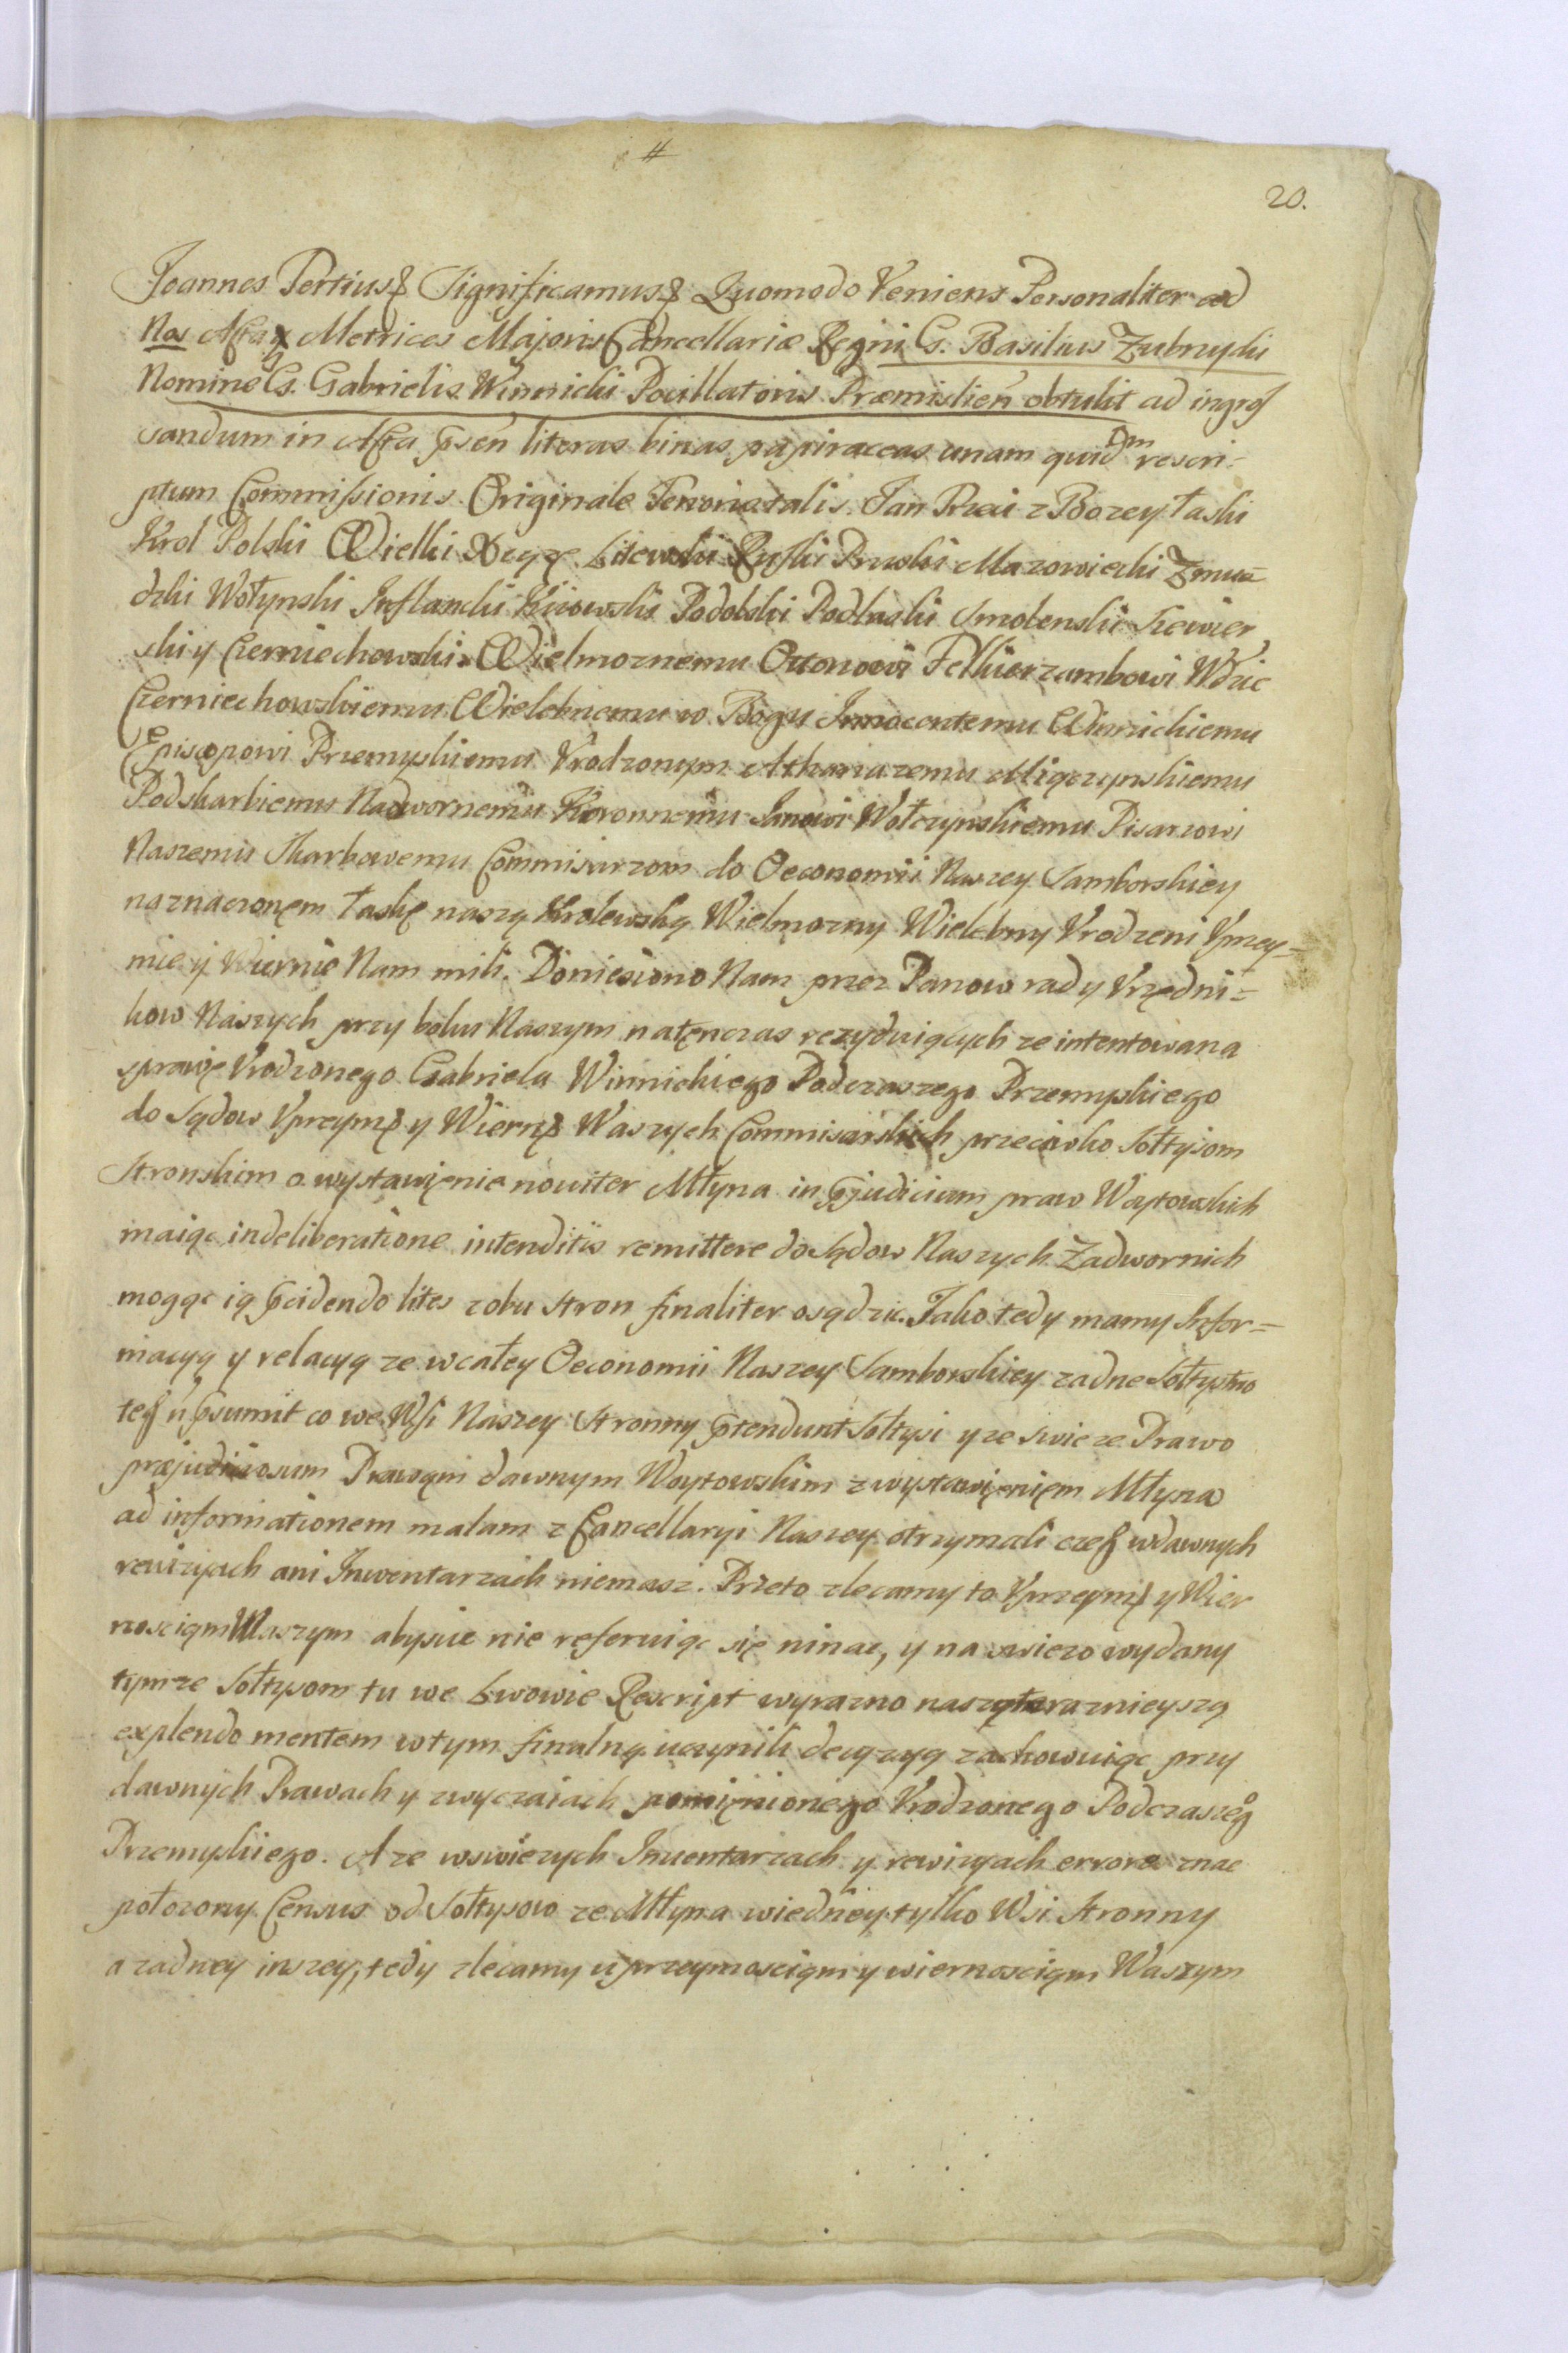 #
20.
Joannes Tertius & Significamus & Quomodo Veniens Personaliter ad
Nos Acta q Metrices Majoris Cancellariæ Regni G. Basilius Zubrycki
Nomine G. Gabrielis Winnicki Pocillatoris Præmislien obtulit ad ingros
sandum in Acta psen literas binas papiraceas unam quid Dpm rescri-
ptum Commissionis Originale Tenoris talis. Jan Trzeci z Bozey łaski
Krol Polski Wielki Xcyze Litewski Ruski Pruski Mazowiecki Zmu-
dzki Wołynski Inflancki Kiiowski Podolski Podlaski Smolenski Siewier
ski y Czerniechowski. Wielmoznemu Ottonowi Felkierzambowi Wdzie
Czerniechowskiemu Wielebnemu w Bogu Innocentemu Winnickiemu
Episcopowi Przemyskiemu Vrodzonym Athanazemu Miączynskiemu
Podskarbiemu Nadwornemu Koronnemu Janowi Wołczynskiemu Pisarzowi
Naszemu Skarbowemu Commisarzom do Oeconomii Naszey Samborskiey
naznaczonęm łaskę naszą Krolewską Wielmozny Wielebny Vrodzeni Vprzey=
mie y Wiernie Nam mili. Doniesiono Nam przez Panow rad y Vrzędni=
kow Naszych przy boku Naszym natęnczas rezyduiących ze intentowana
sprawę Vrodzonego Gabriela Winnickiego Podczaszego Przemyskiego
do Sądow Vprzym y Wiern Waszych Commisarskich przeciwko Sołtysom
Stronskim o wystawięnie noviter Młyna in pjudicium praw Woytowskich
maiąc indeliberatione intenditis remittere do Sądow Naszych Zadwornich
mogąc ią pcidendo lites z obu stron finaliter osądzic. Jako tedy mamy Infor=
macyą y relacyą ze wcałey Oeconomii Naszey Samborskiey zadne Sołtystwo
teg n psumit co we Wsi Naszey Stronny ptendunt Sołtysi y ze swieze Prawo
præjudiciosum Prawęm dawnym Woytowskim z wystawięnięm Młyna
ad informationem malam z Cancellaryi Naszey otrzymali czeg wdawnych
rewizyach ani Inwentarzach niemasz. Przeto zlecamy to Vprzeym y Wier
nosciąm Waszym abyscie nie referuiąc się ninac, y na swiezo wydany
tymze Sołtysom tu we Lwowie Rescript wyrazno naszą teraznieyszą
explendo mentem wtym finalną uczynili decyzyą zachowuiąc przy
dawnych Prawach y zwyczaiach pomięnionego Vrodzonego Podczaszeg
Przemyskiego. A ze wswiezych Inuentarzach y rewizyach errore znac
połozony Census od Sołtysow ze Młyna wiedney tylko Wsi Stronny
a zadney inszey, tedy zlecamy uprzeymosciąm y wiernosciąm Waszym